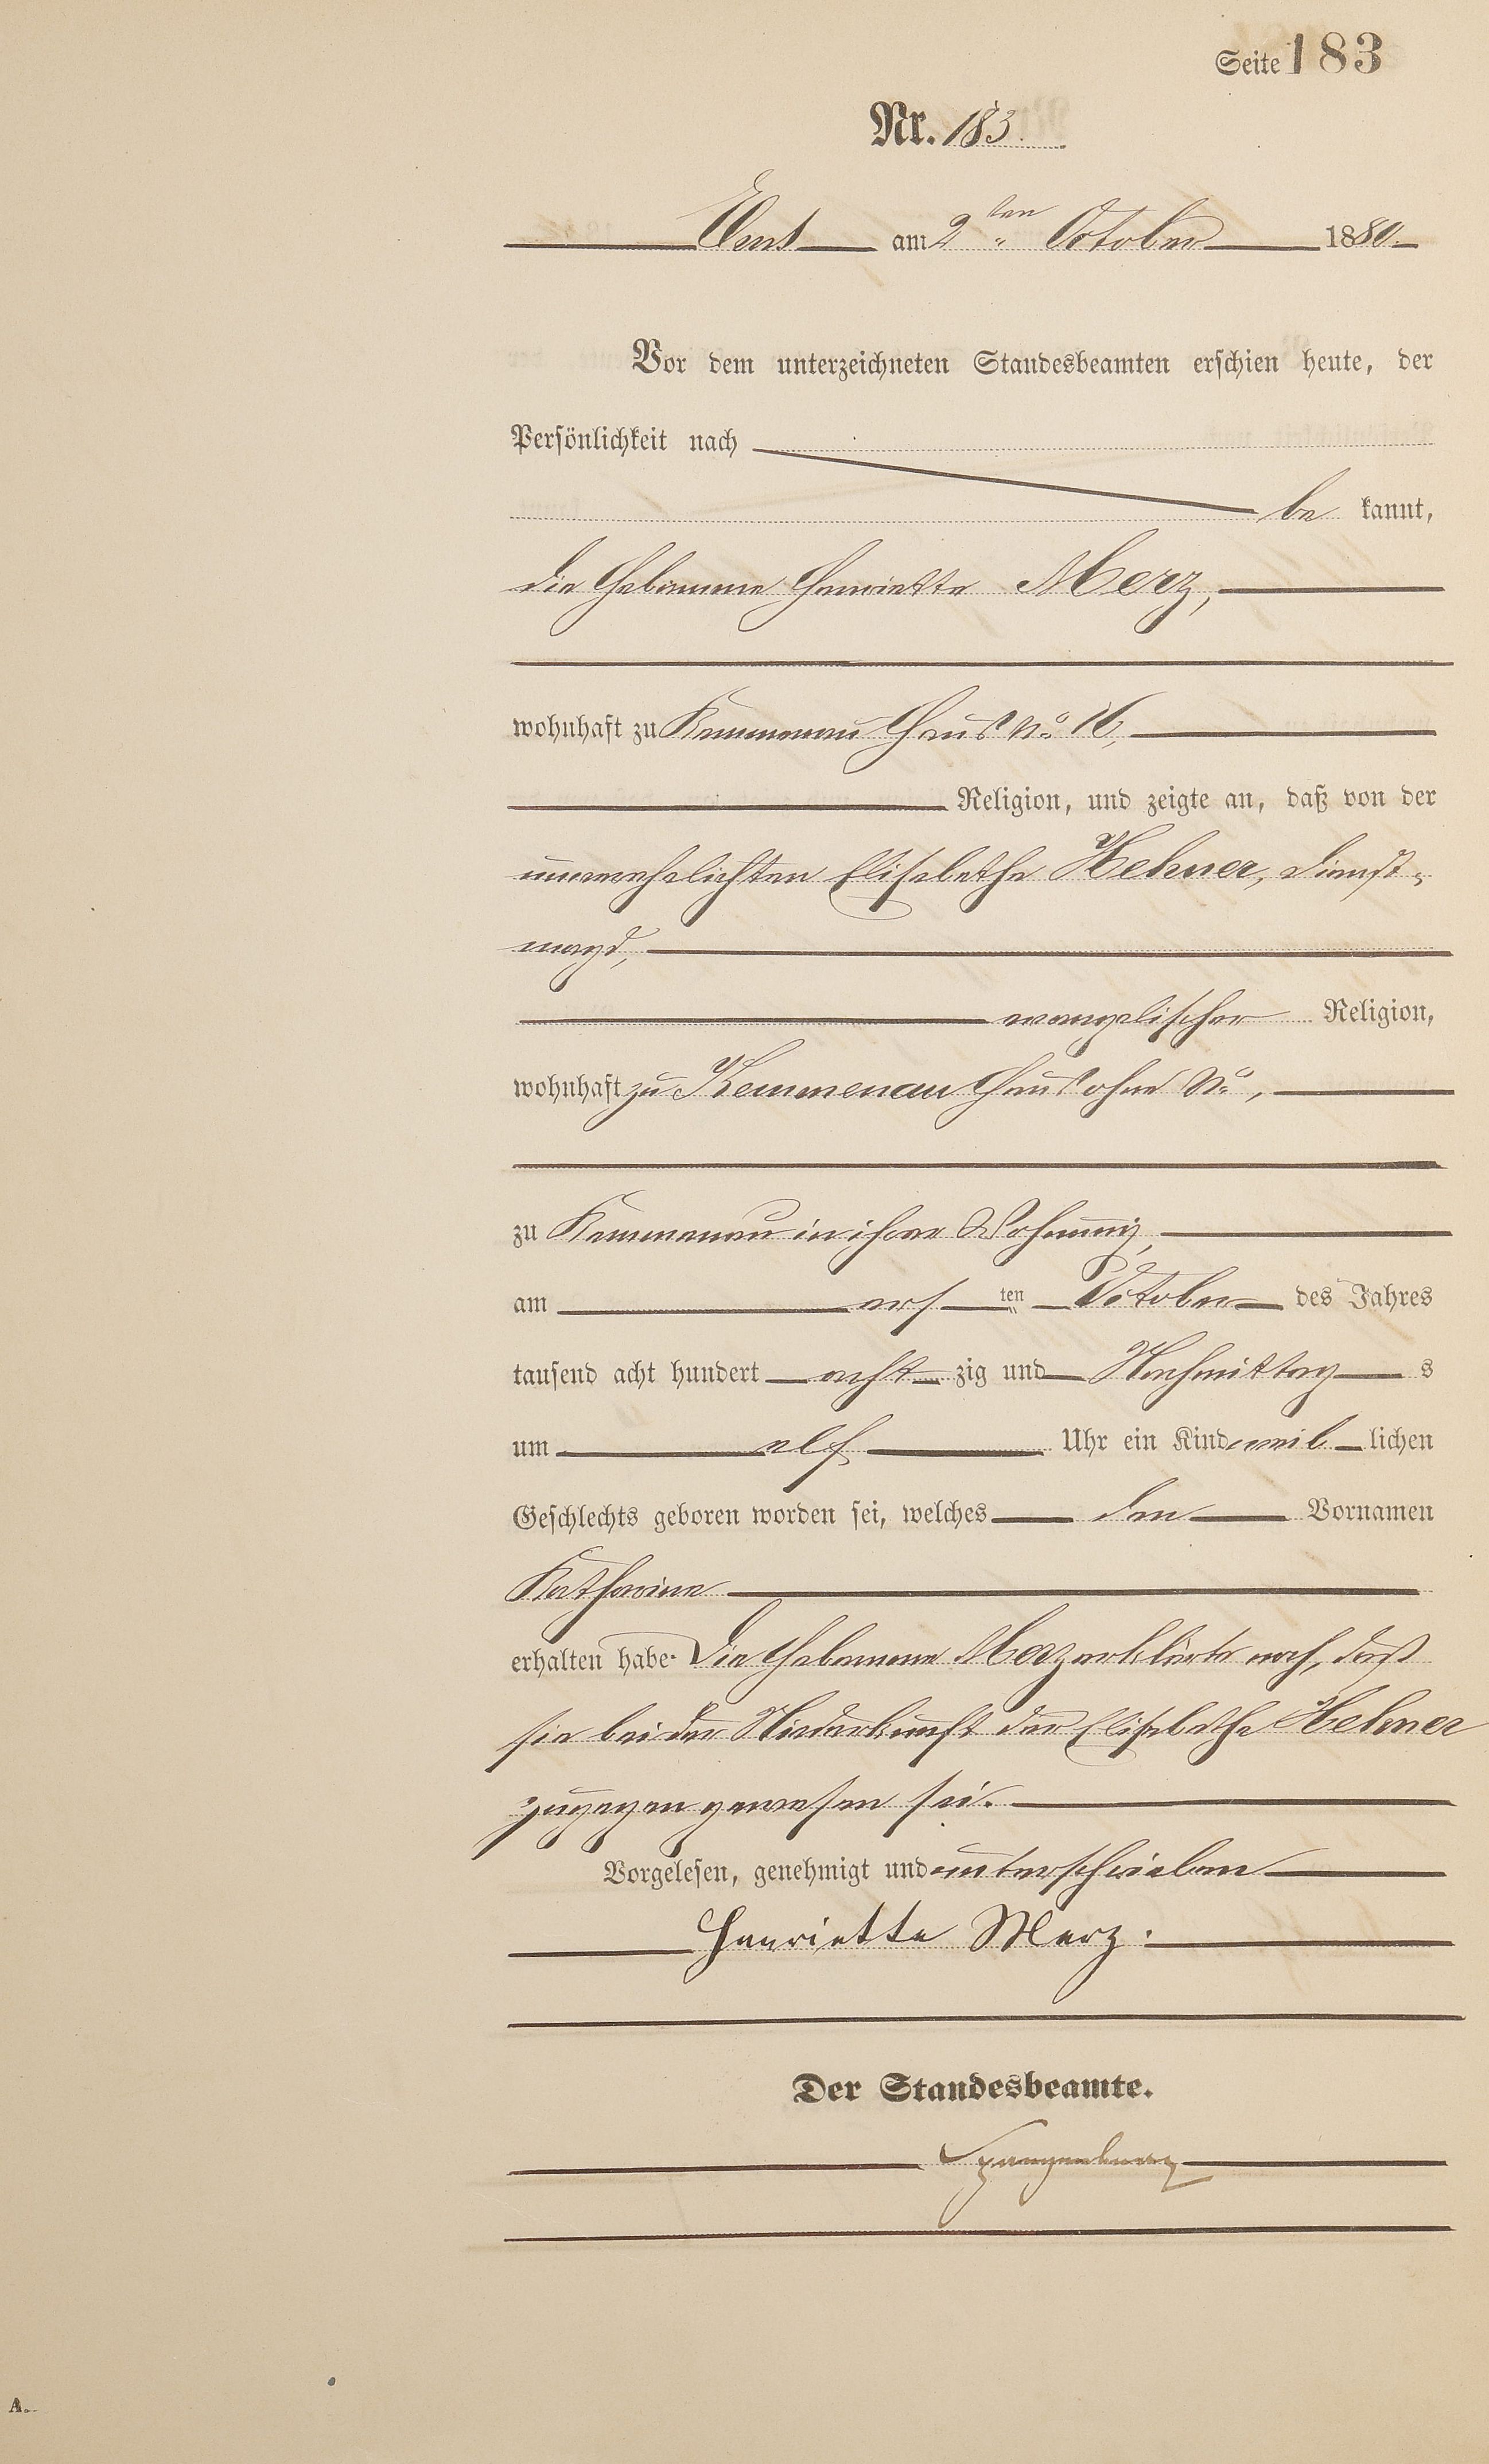 Seite 183
Nr. 183.
Ems am 2ten October 1880.
Vor dem unterzeichneten Standesbeamten erschien heute, der
Persönlichkeit nach
be kannt,
die Hebamme Henriette Merz,
wohnhaft zu Kemmenau Haus No 16,
Religion, und zeigte an, daß von der
unverehelichten Elisabethe Hehner, Dienst-
magd,
evangelischer Religion,
wohnhaft zu Kemmenau Haus ohne No,
zu Kemmenau in ihrer Wohnung,
am ers ten October des Jahres
tausend acht hundert acht zig und Nachmittag s
um elf Uhr ein Kind weib lichen
Geschlechts geboren worden sei, welches den Vornamen
Katharine
erhalten habe. Die Hebamme Merz erklärte noch, daß
sie bei der Niederkunft der Elisabethe Hehner
zugegen gewesen sei.
Vorgelesen, genehmigt und unterschrieben
Henriette Merz.
Der Standesbeamte.
Spangenberg
A.